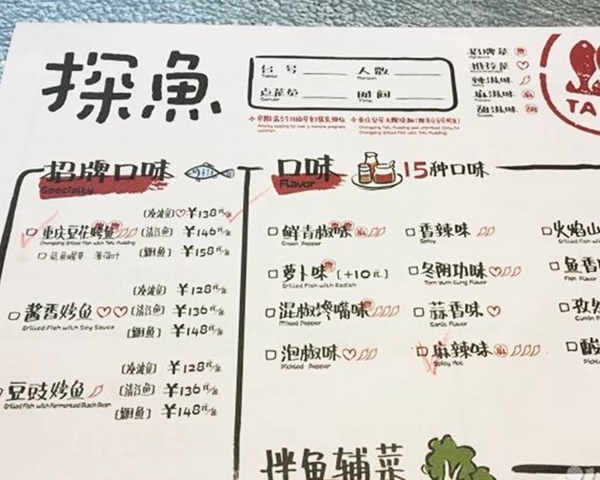 探魚
台 号 人 数
Table Person
点菜员 时 间
Server Time
招牌菜
推荐菜
辣滋味
麻滋味
甜滋味 甜
TA
招牌口味
Specialty
口味 15种口味
Flavor
¥138元/条
重庆豆花烤鱼 (清江鱼) ¥146元/条
Chongqing Grilled Fish with Tofu Pudding
¥158元/条
¥128元/条
酱香烤鱼 (清江鱼) ¥136元/条
Grilled Fish with Soy Sauce
¥148元/条
¥128元/条
豆豉烤鱼 (清江鱼) ¥136元/条
Grilled Fish with Fermented Black Bean
¥148元/条
鲜青椒味 麻 香辣味 火焰山
Green Pepper Spicy
萝卜味 (+10元) 冬阴功味 鱼香
Grilled Fish with Radish Tom Yum Kung Flavor
混椒馋嘴味 蒜香味 孜然
Mixed Pepper Garlic Flavor Cumin
泡椒味 麻辣味 麻 酸
Pickled Pepper Spicy Hot
拌鱼辅菜